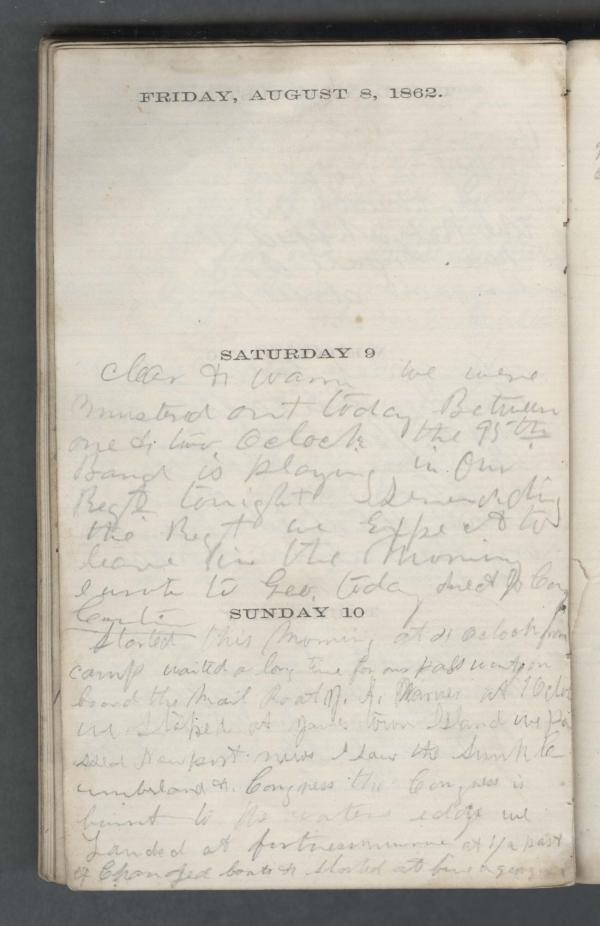 FRIDAY, AUGUST 8, 1862.
SATURDAY 9
Clear & warm we were
mustered out today Between
one & two Oclock the 95th
Band is playing in Our
Regt tonight Serenading
the Regt we Expect to
leave in the Morning
I wrote to Geo. today
SUNDAY 10
Started this Morning at Oclock from
camp waited a long time for our pass went on
board the Mail Boat Warner at Oclo
we Stoped at James town Island we pa
ssed Newport news I saw the Sunk C
umberland & Congress the Congress is
burnt to the waters edge we
Landed at fortressmunroe at 1/2 past
4 Changed boats & started at five